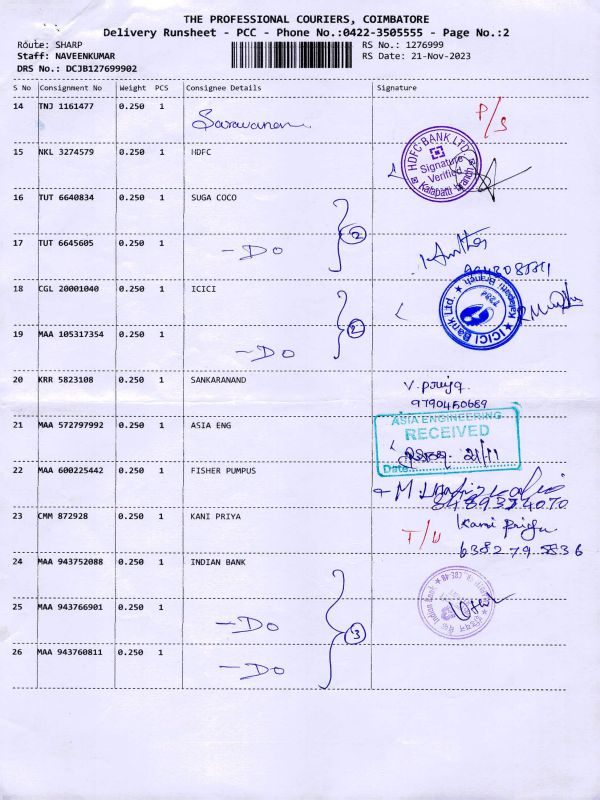 THE PROFESSIONAL COURIERS, COIMBATORE
Delivery Runsheet - PCC - Phone No.:0422-3505555 - Page No.:2
Route: SHARP RS No.: 1276999
Staff: NAVEENKUMAR RS Date: 21-Nov-2023
DRS No.: DCJB127699902
S No Consignment No Weight PCS Consignee Details Signature
14 TNJ 1161477 0.250 1 Saravanan P/S
15 NKL 3274579 0.250 1 HDFC
HDFC BANK LTD
Signature Verified
Kalapatti Branch
16 TUT 6640834 0.250 1 SUGA COCO
2
17 TUT 6645605 0.250 1 -DO
18 CGL 20001040 0.250 1 ICICI
ICICI Bank Ltd.
Kalapatti Branch
2
19 MAA 105317354 0.250 1 -DO
20 KRR 5823108 0.250 1 SANKARANAND V. Priya
9790450689
21 MAA 572797992 0.250 1 ASIA ENG
ASIA ENGINEERING
RECEIVED
Date 21/11
22 MAA 600225442 0.250 1 FISHER PUMPUS
8489374070
23 CMM 872928 0.250 1 KANI PRIYA T/U Kani Priya
638279 5836
24 MAA 943752088 0.250 1 INDIAN BANK
Indian Bank
25 MAA 943766901 0.250 1 -DO
3
26 MAA 943760811 0.250 1 -DO